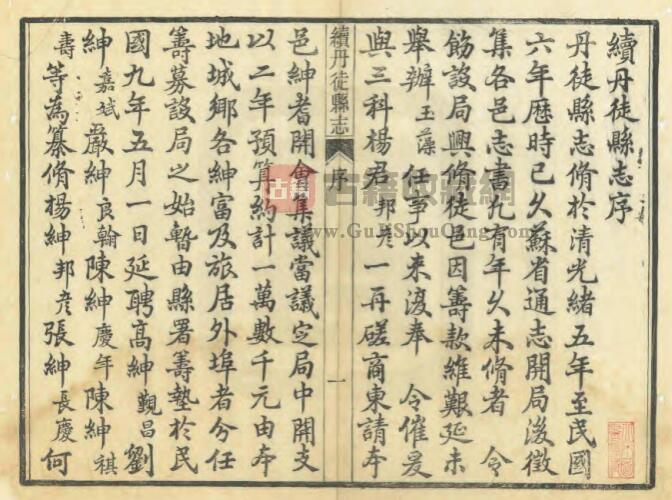 續丹徒縣志序
丹徒縣志脩於清光緒五年至民國
六年歷時已久蘇省通志開局後徵
集各邑志書凡有年久未脩者　令
飭設局興脩徒邑因籌款維艱延未
舉辦玉藻任事以来復奉　令催爰
與三科楊君邦彦一再磋商東請本
續丹徒縣志
序
一
邑紳耆開會集議當議定局中開支
以二年預算約計一萬數千元由本
地城鄉各紳富及旅居外埠者分任
籌募設局之始暫由縣署籌墊於民
國九年五月一日延聘高紳覲昌劉
紳嘉斌嚴紳良翰陳紳慶年陳紳祺
壽等為纂脩楊紳邦彦張紳長慶何
古籍收藏網
www.GuJiShouCang.com